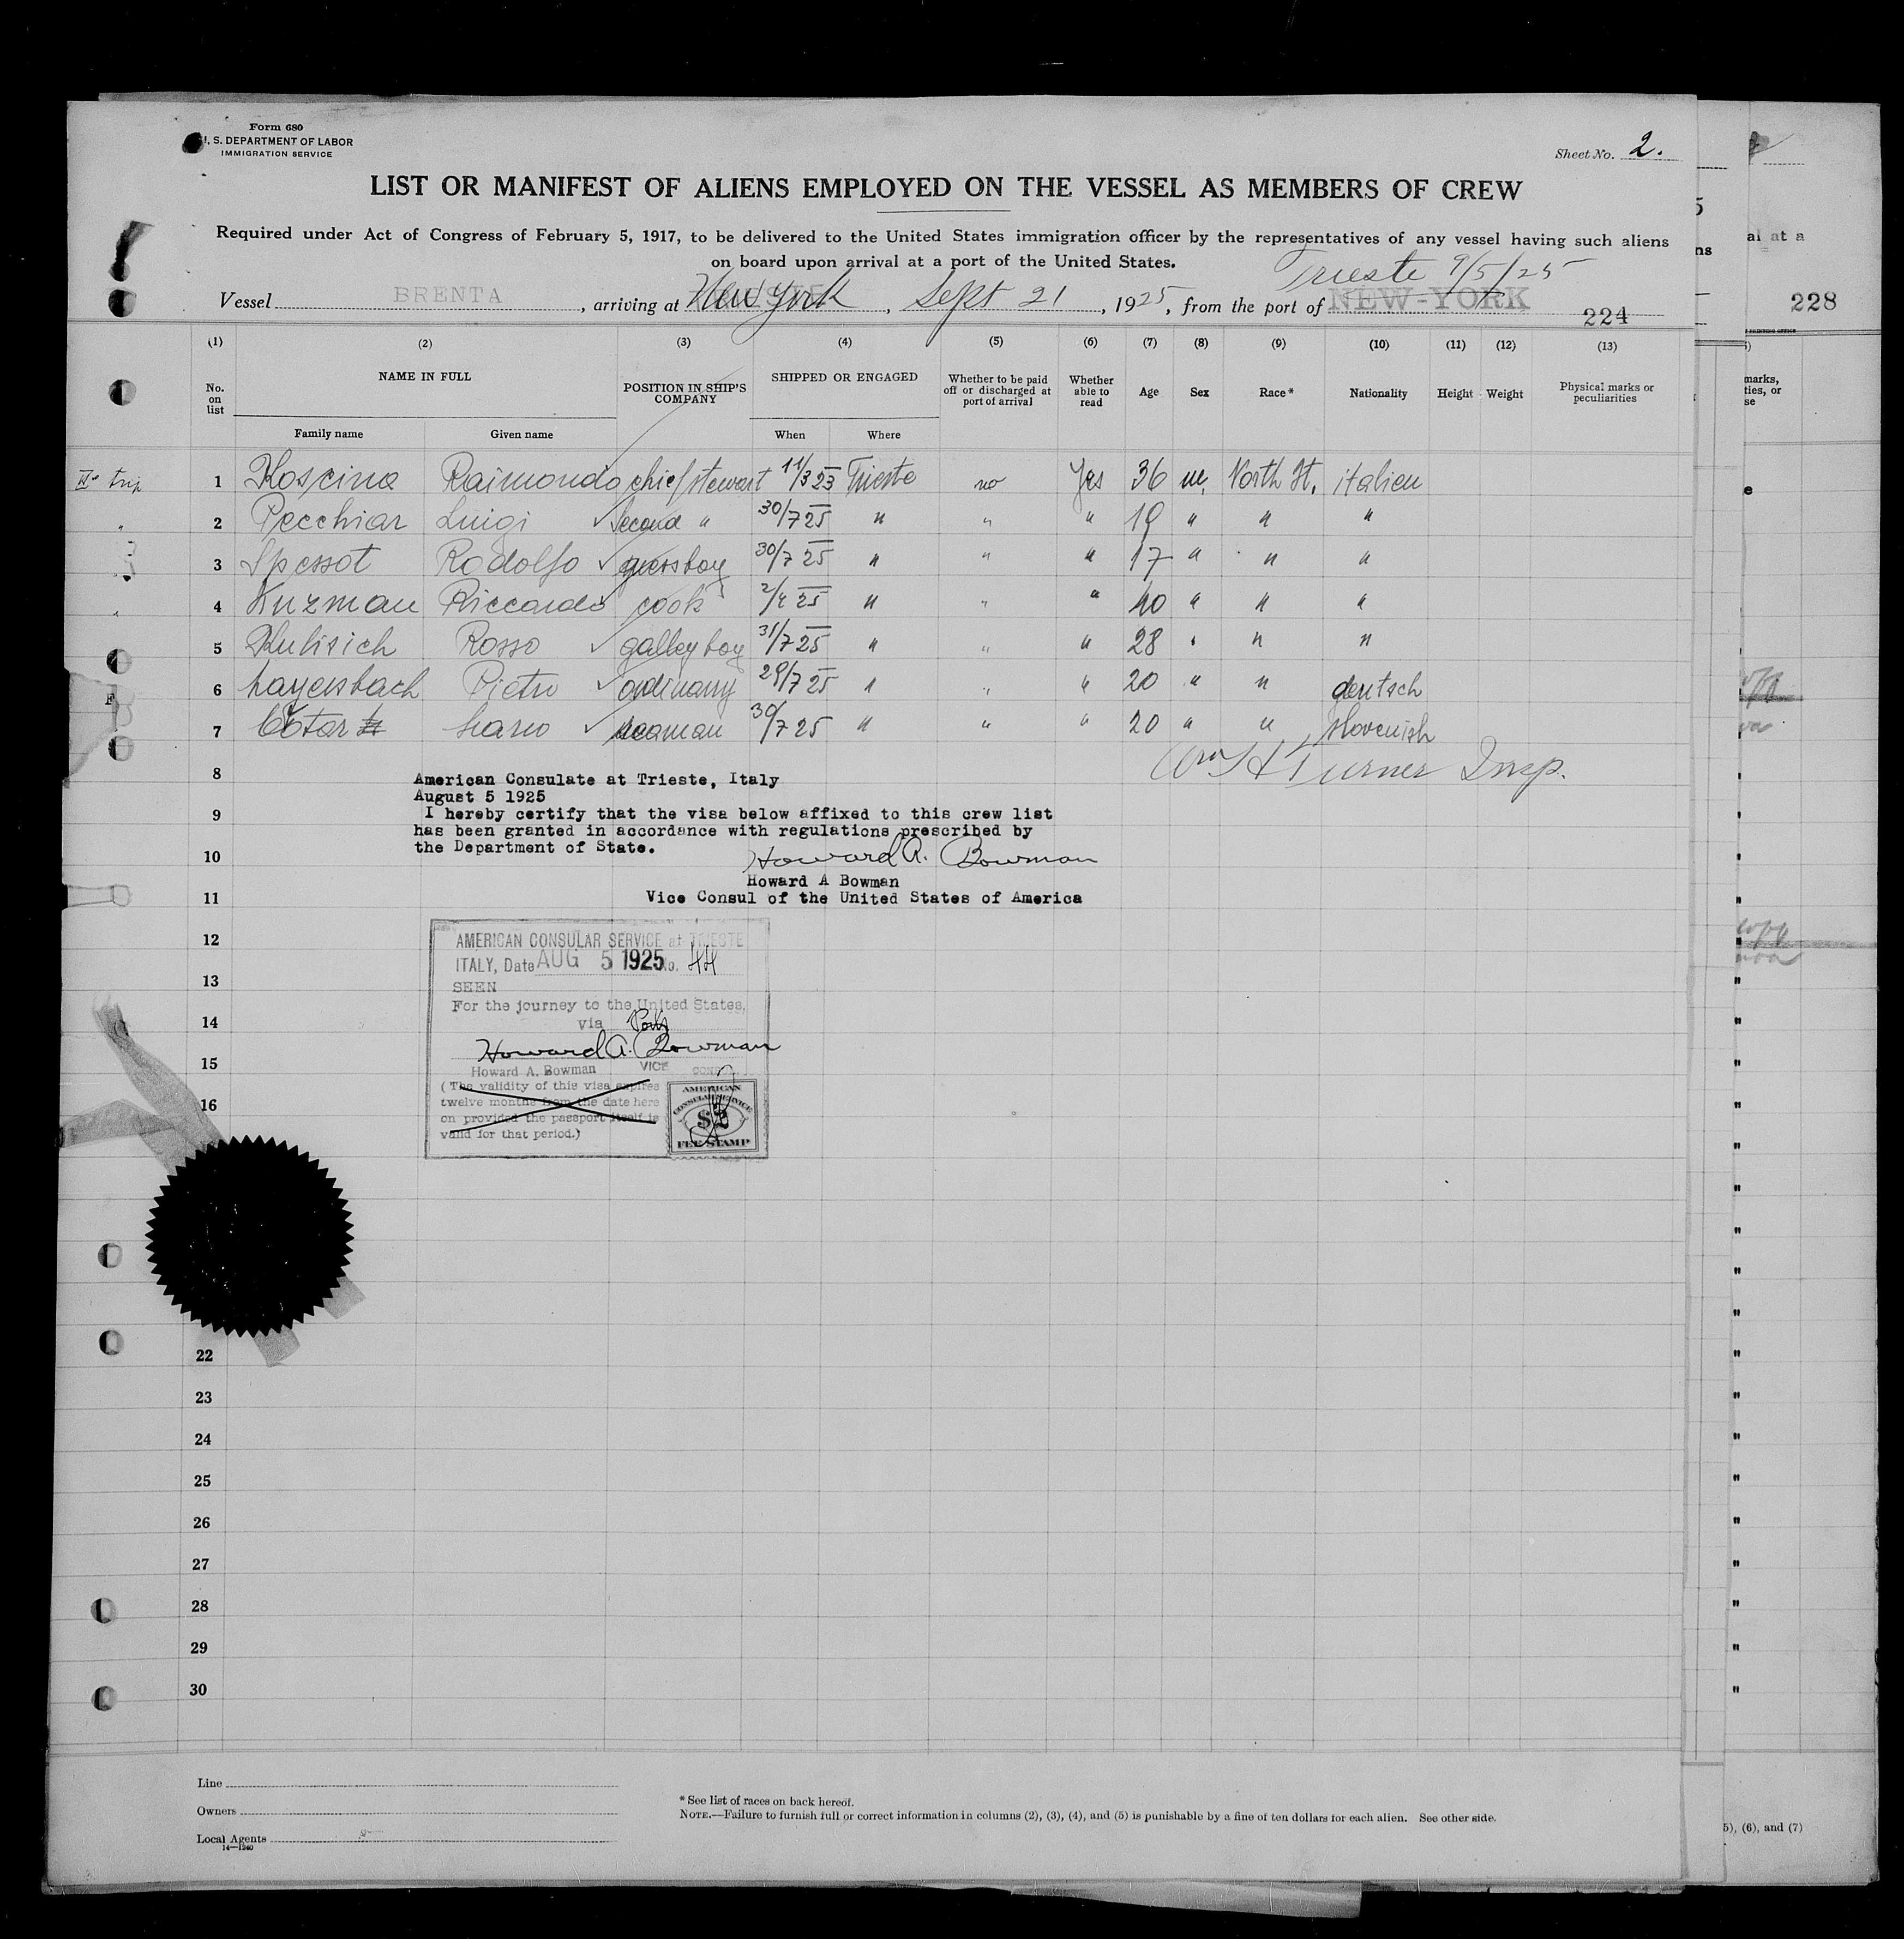 Form 680
U. S. DEPARTMENT OF LABOR
IMMIGRATION SERVICE
Sheet No. 2.
LIST OR MANIFEST OF ALIENS EMPLOYED ON THE VESSEL AS MEMBERS OF CREW
Required under Act of Congress of February 5, 1917, to be delivered to the United States immigration officer by the representatives of any vessel having such aliens
on board upon arrival at a port of the United States.
Trieste 9/5/25
Vessel BRENTA, arriving at New York, Sept 21, 1925, from the port of NEW-YORK
224
(1) (2) (3) (4) (5) (6) (7) (8) (9) (10) (11) (12) (13)
No. on list NAME IN FULL POSITION IN SHIP'S COMPANY SHIPPED OR ENGAGED Whether to be paid off or discharged at port of arrival Whether able to read Age Sex Race* Nationality Height Weight Physical marks or peculiarities
Family name Given name When Where
IIº trip 1 Koscina Raimondo chief stewart 11/3 23 Trieste no Yes 36 m. North It. italien
" 2 Pecchiar Luigi second " 30/7 25 " " " 19 " " "
3 Spessot Rodolfo messboy 30/7 25 " " " 17 " " "
" 4 Kuzman Riccardo cook 25 " " " 40 " " "
5 Kulisich Rosso galleyboy 31/7 25 " " " 28 " " "
6 Layersbach Pietro ordinary 29/7 25 " " " 20 " " deutsch
7 Cotar Mario seaman 30/7 25 " " " 20 " " slovenish
Wm H Turner Insp.
8
American Consulate at Trieste, Italy
August 5 1925
9
I hereby certify that the visa below affixed to this crew list
has been granted in accordance with regulations prescribed by
the Department of State.
10
Howard A. Bowman
Howard A Bowman
11
Vice Consul of the United States of America
12
AMERICAN CONSULAR SERVICE at TRIESTE
ITALY, Date AUG 5 1925 No. 44
13
SEEN
For the journey to the United States,
14
via Ports
Howard A. Bowman
15
Howard A. Bowman VICE CONSUL
(The validity of this visa expires
twelve months from the date here
16
on provided the passport itself is
valid for that period.)
AMERICAN
CONSULAR SERVICE
$2
FEE STAMP
22
23
24
25
26
27
28
29
30
Line
Owners
Local Agents
14—1240
* See list of races on back hereof.
NOTE.—Failure to furnish full or correct information in columns (2), (3), (4), and (5) is punishable by a fine of ten dollars for each alien. See other side.
al at a
228
marks,
ties, or
se
5), (6), and (7)